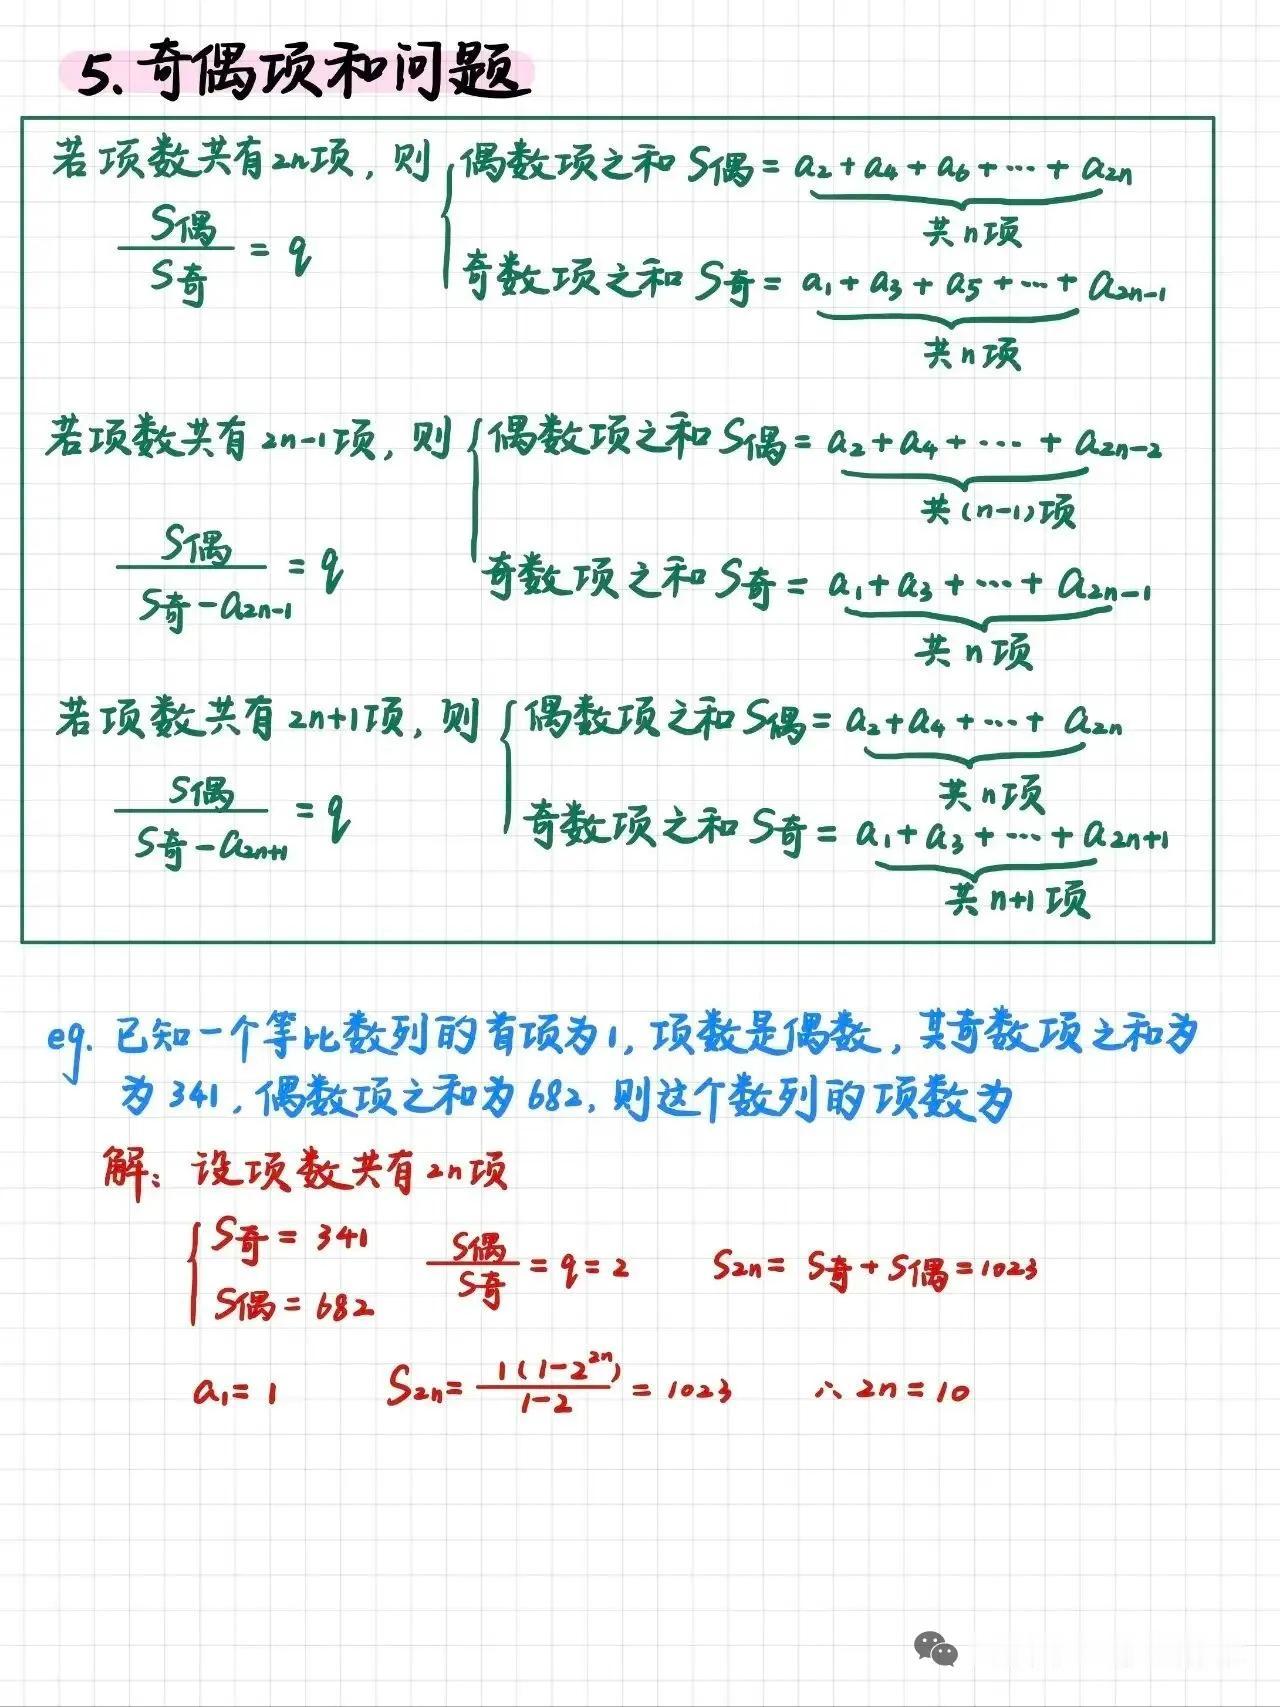 5. 奇偶项和问题
若项数共有2n项, 则 { 偶数项之和 S偶 = a₂ + a₄ + a₆ + ⋯ + a₂ₙ
共n项
S偶/S奇 = q
奇数项之和 S奇 = a₁ + a₃ + a₅ + ⋯ + a₂ₙ₋₁
共n项
若项数共有 2n-1项, 则 { 偶数项之和 S偶 = a₂ + a₄ + ⋯ + a₂ₙ₋₂
共(n-1)项
S偶/(S奇 - a₂ₙ₋₁) = q
奇数项之和 S奇 = a₁ + a₃ + ⋯ + a₂ₙ₋₁
共n项
若项数共有 2n+1项, 则 { 偶数项之和 S偶 = a₂ + a₄ + ⋯ + a₂ₙ
共n项
S偶/(S奇 - a₂ₙ₊₁) = q
奇数项之和 S奇 = a₁ + a₃ + ⋯ + a₂ₙ₊₁
共n+1项
eg. 已知一个等比数列的首项为1, 项数是偶数, 其奇数项之和为
为341, 偶数项之和为682, 则这个数列的项数为
解: 设项数共有2n项
{ S奇 = 341
S偶 = 682
S偶/S奇 = q = 2
S₂ₙ = S奇 + S偶 = 1023
a₁ = 1 S₂ₙ = 1(1-2²ⁿ)/(1-2) = 1023 ∴ 2n = 10